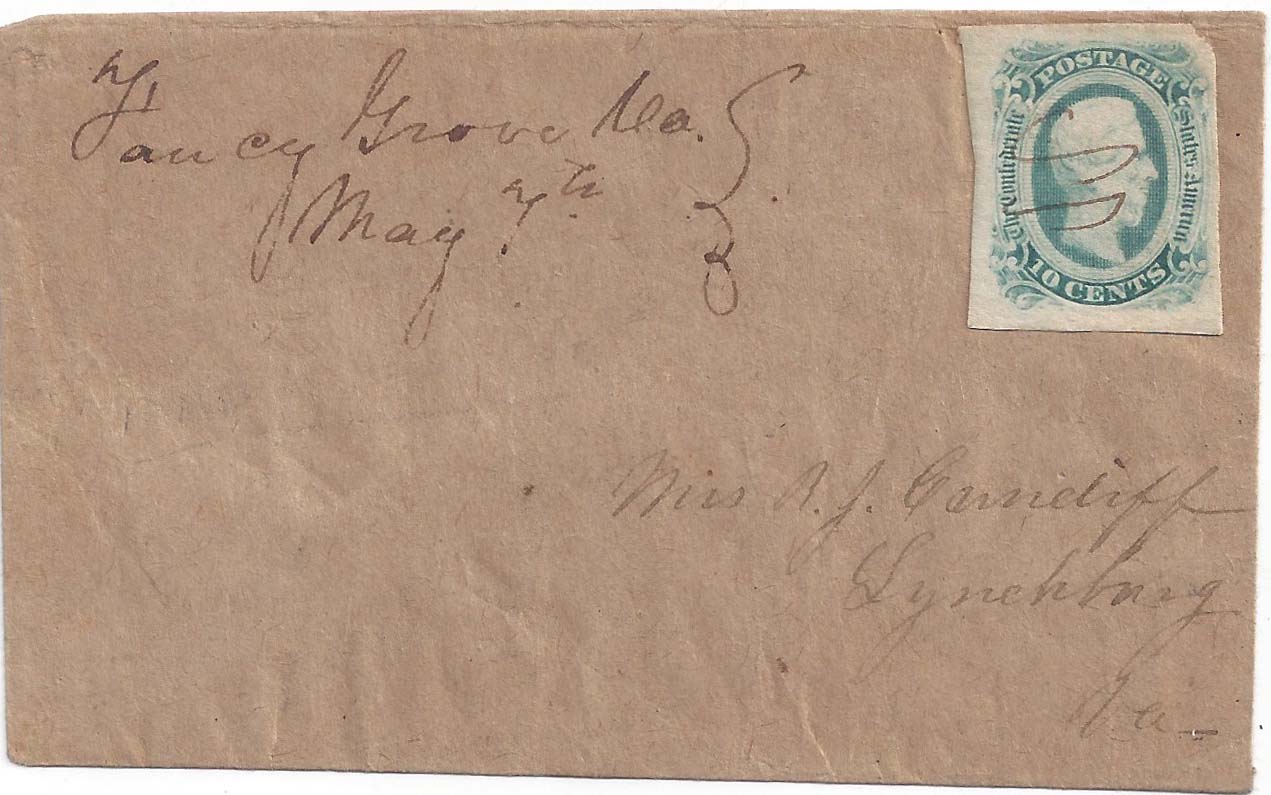 Fancy Grove Va.
May 7th
POSTAGE
The Confederate
States America
10 CENTS
Mrs R. J. Cundiff
Lynchburg
Va